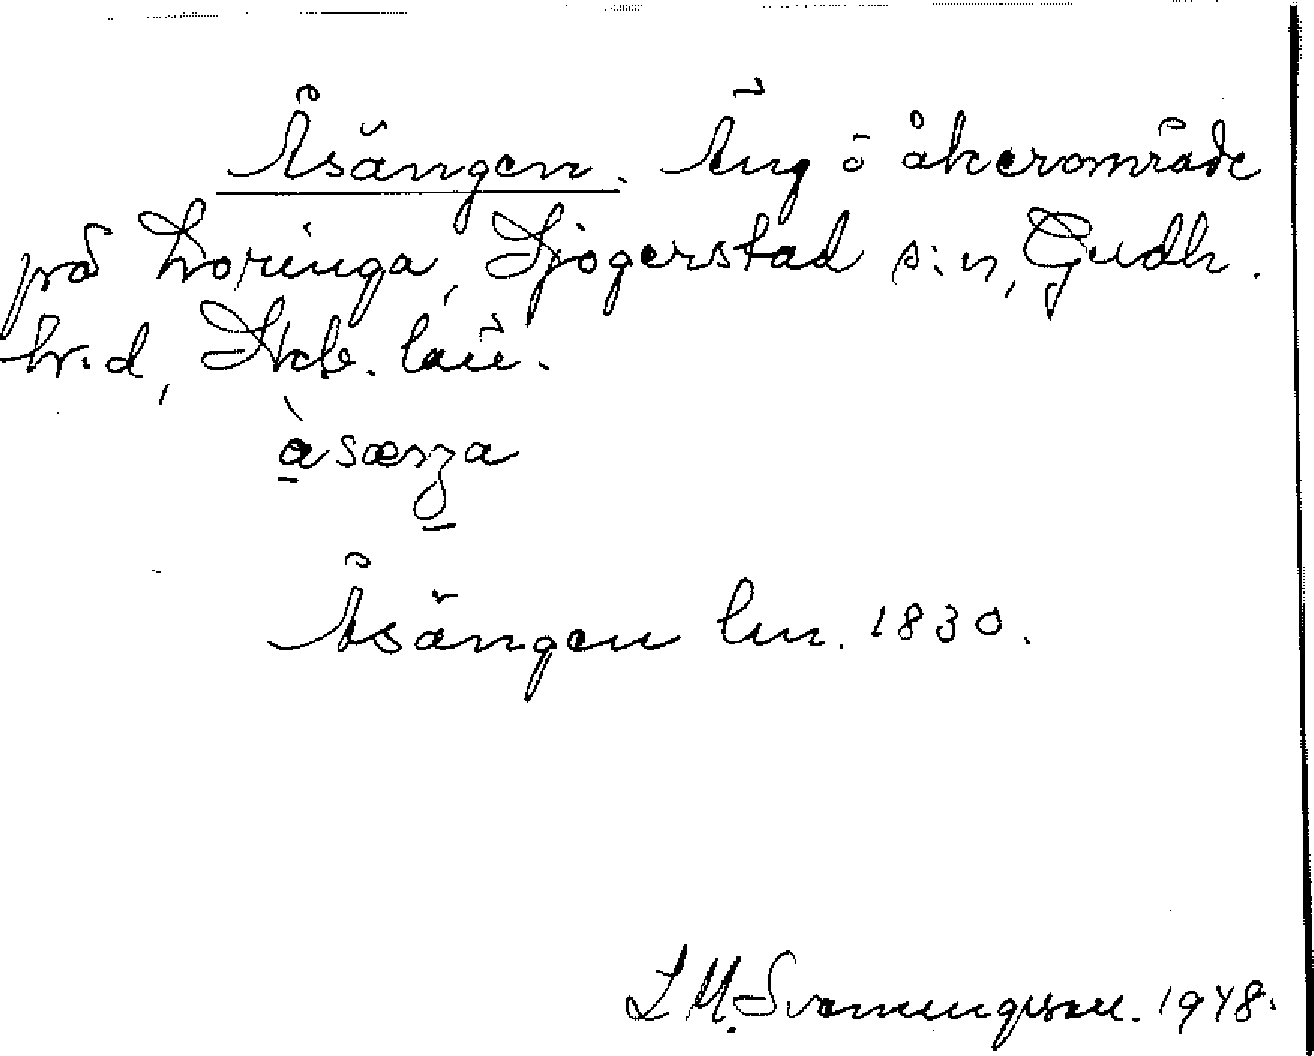 Åsängen. Äng o åkerområde
på Loringa, Sjogerstad s:n, Gudh.
h:d, Skb. län.
àsænga
Åsängen lm. 1830.
L M. Svenungsson. 1948.